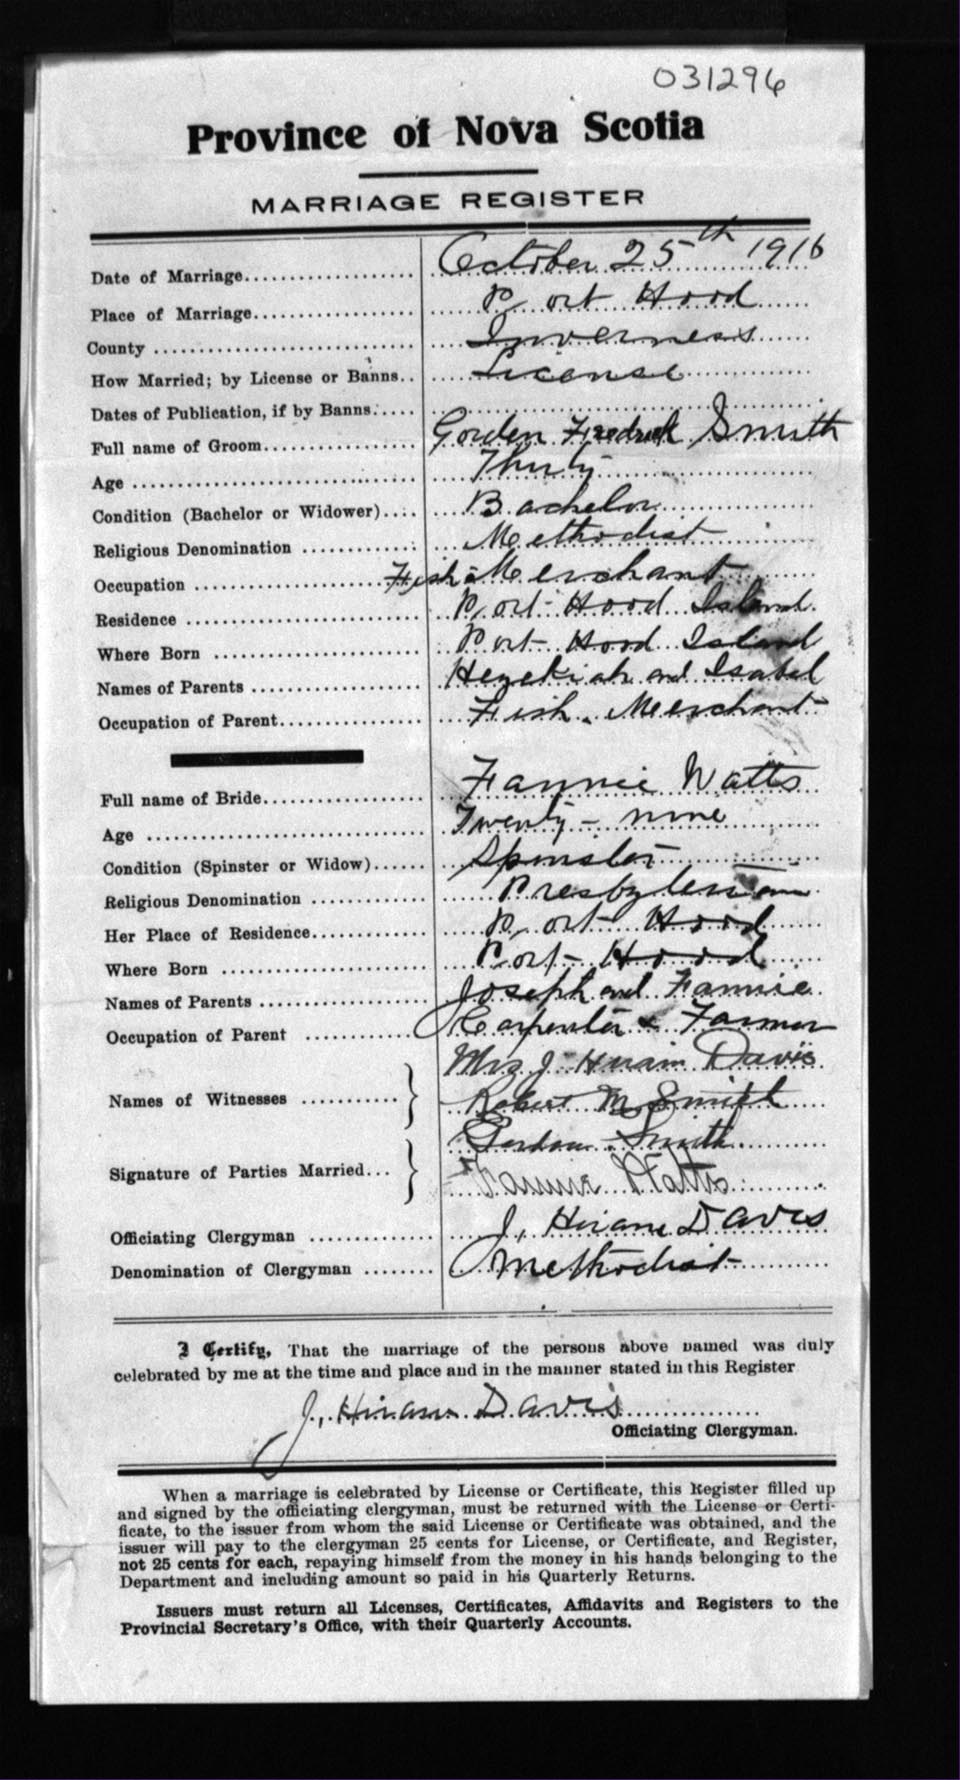 031296
Province of Nova Scotia
MARRIAGE REGISTER
Date of Marriage October 25th 1916
Place of Marriage Port Hood
County Inverness
How Married; by License or Banns License
Dates of Publication, if by Banns
Full name of Groom Gorden Fredrick Smith
Age Thirty
Condition (Bachelor or Widower) Bachelor
Religious Denomination Methodist
Occupation Fish Merchant
Residence Port Hood Island
Where Born Port Hood Island
Names of Parents Hezekiah and Isabel
Occupation of Parent Fish Merchant
Full name of Bride Fannie Watts
Age Twenty-nine
Condition (Spinster or Widow) Spinster
Religious Denomination Presbyterian
Her Place of Residence Port Hood
Where Born Port Hood
Names of Parents Joseph and Fannie
Occupation of Parent Carpenter & Farmer
Mrs J Hiram Davis
Names of Witnesses Robert M Smith
Gordon Smith
Signature of Parties Married Fannie Watts
Officiating Clergyman J. Hiram Davis
Denomination of Clergyman Methodist
I Certify, That the marriage of the persons above named was duly
celebrated by me at the time and place and in the manner stated in this Register
J. Hiram Davis
Officiating Clergyman.
When a marriage is celebrated by License or Certificate, this Register filled up
and signed by the officiating clergyman, must be returned with the License or Certi-
ficate, to the issuer from whom the said License or Certificate was obtained, and the
issuer will pay to the clergyman 25 cents for License, or Certificate, and Register,
not 25 cents for each, repaying himself from the money in his hands belonging to the
Department and including amount so paid in his Quarterly Returns.
Issuers must return all Licenses, Certificates, Affidavits and Registers to the
Provincial Secretary's Office, with their Quarterly Accounts.